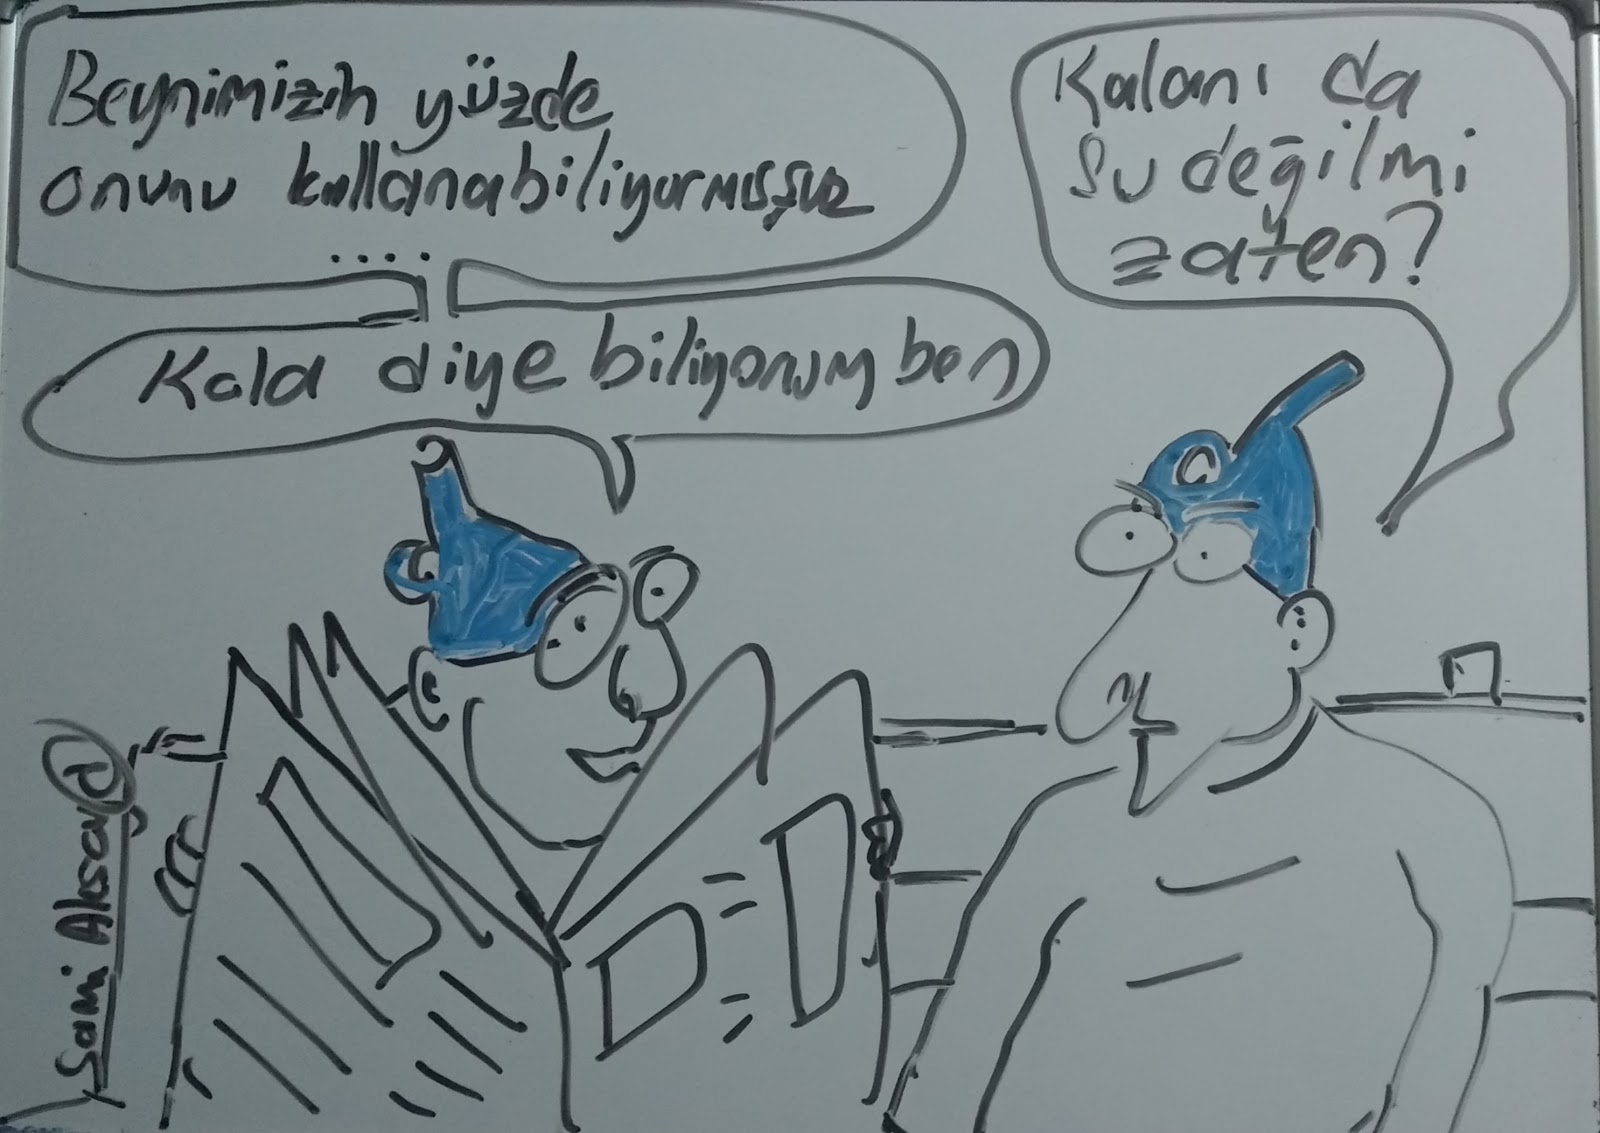 Beynimizin yüzde
onunu kullanabiliyormuşuz
....
Kalanı da
su değilmi
zaten?
Kola diye biliyorum ben
Sami Aksay